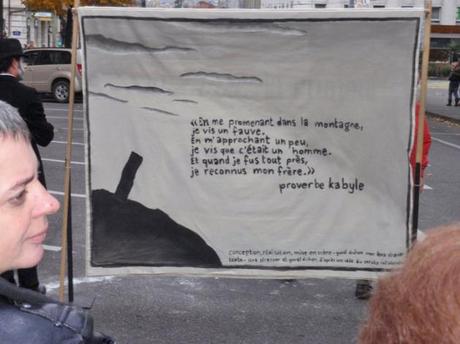 «En me promenant dans la montagne,
je vis un fauve.
En m'approchant un peu,
je vis que c'était un homme.
Et quand je fus tout près,
je reconnus mon frère.»
proverbe kabyle
conception, réalisation, mise en scène -
texte -